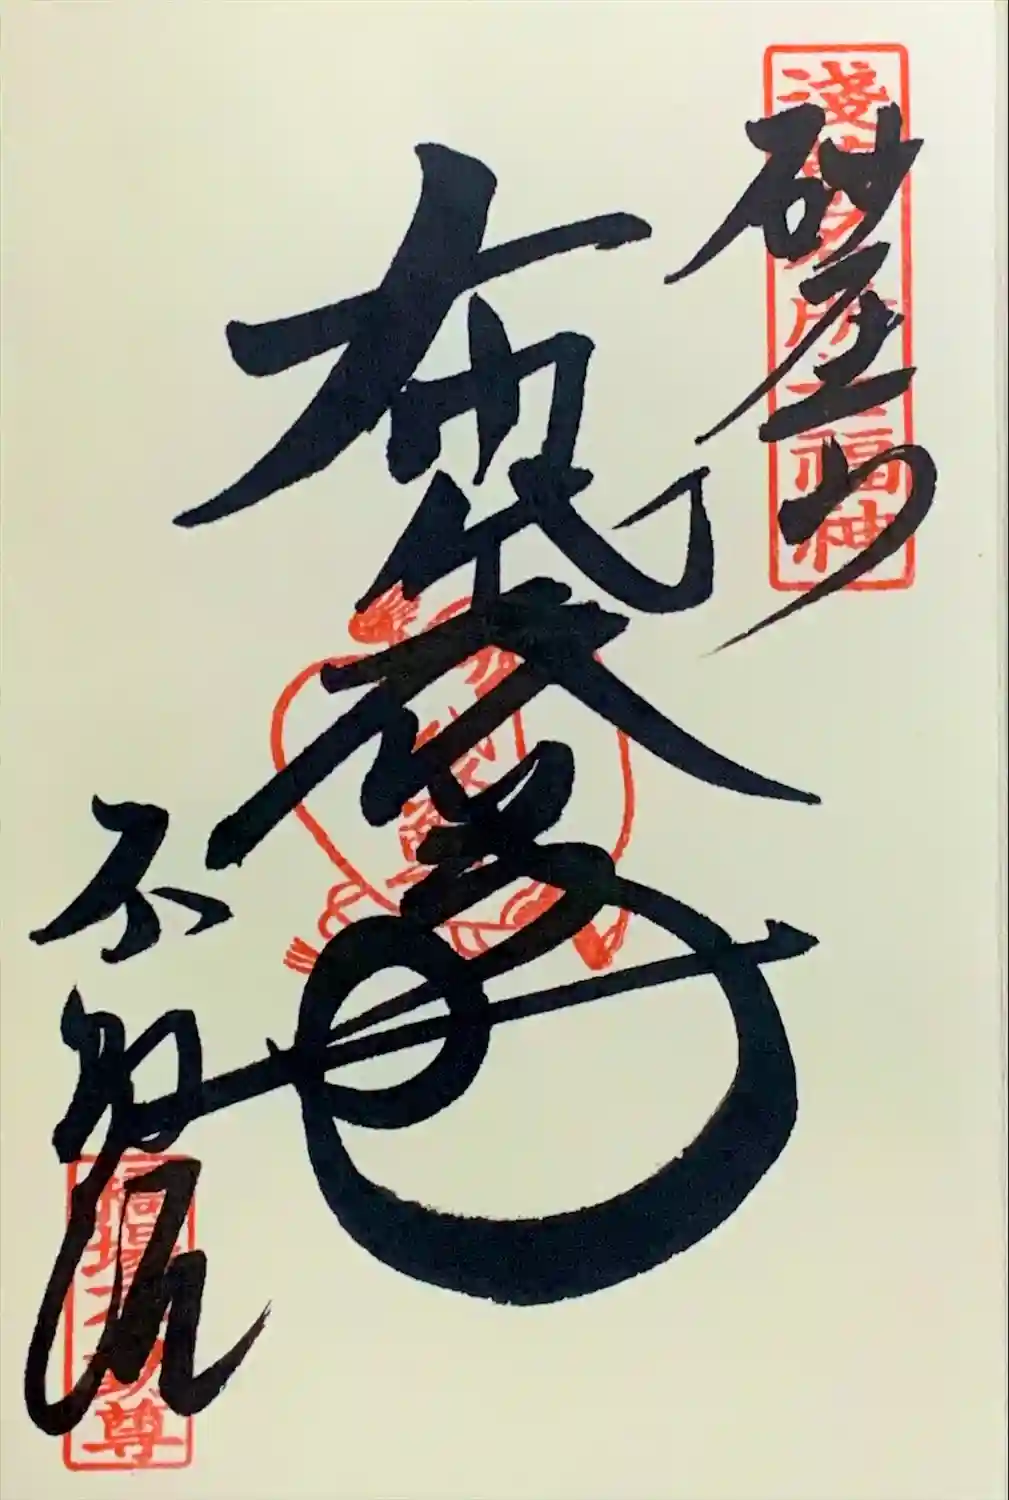 淺草名所七福神
砂尾山
布袋尊
不動院
橋場不動尊